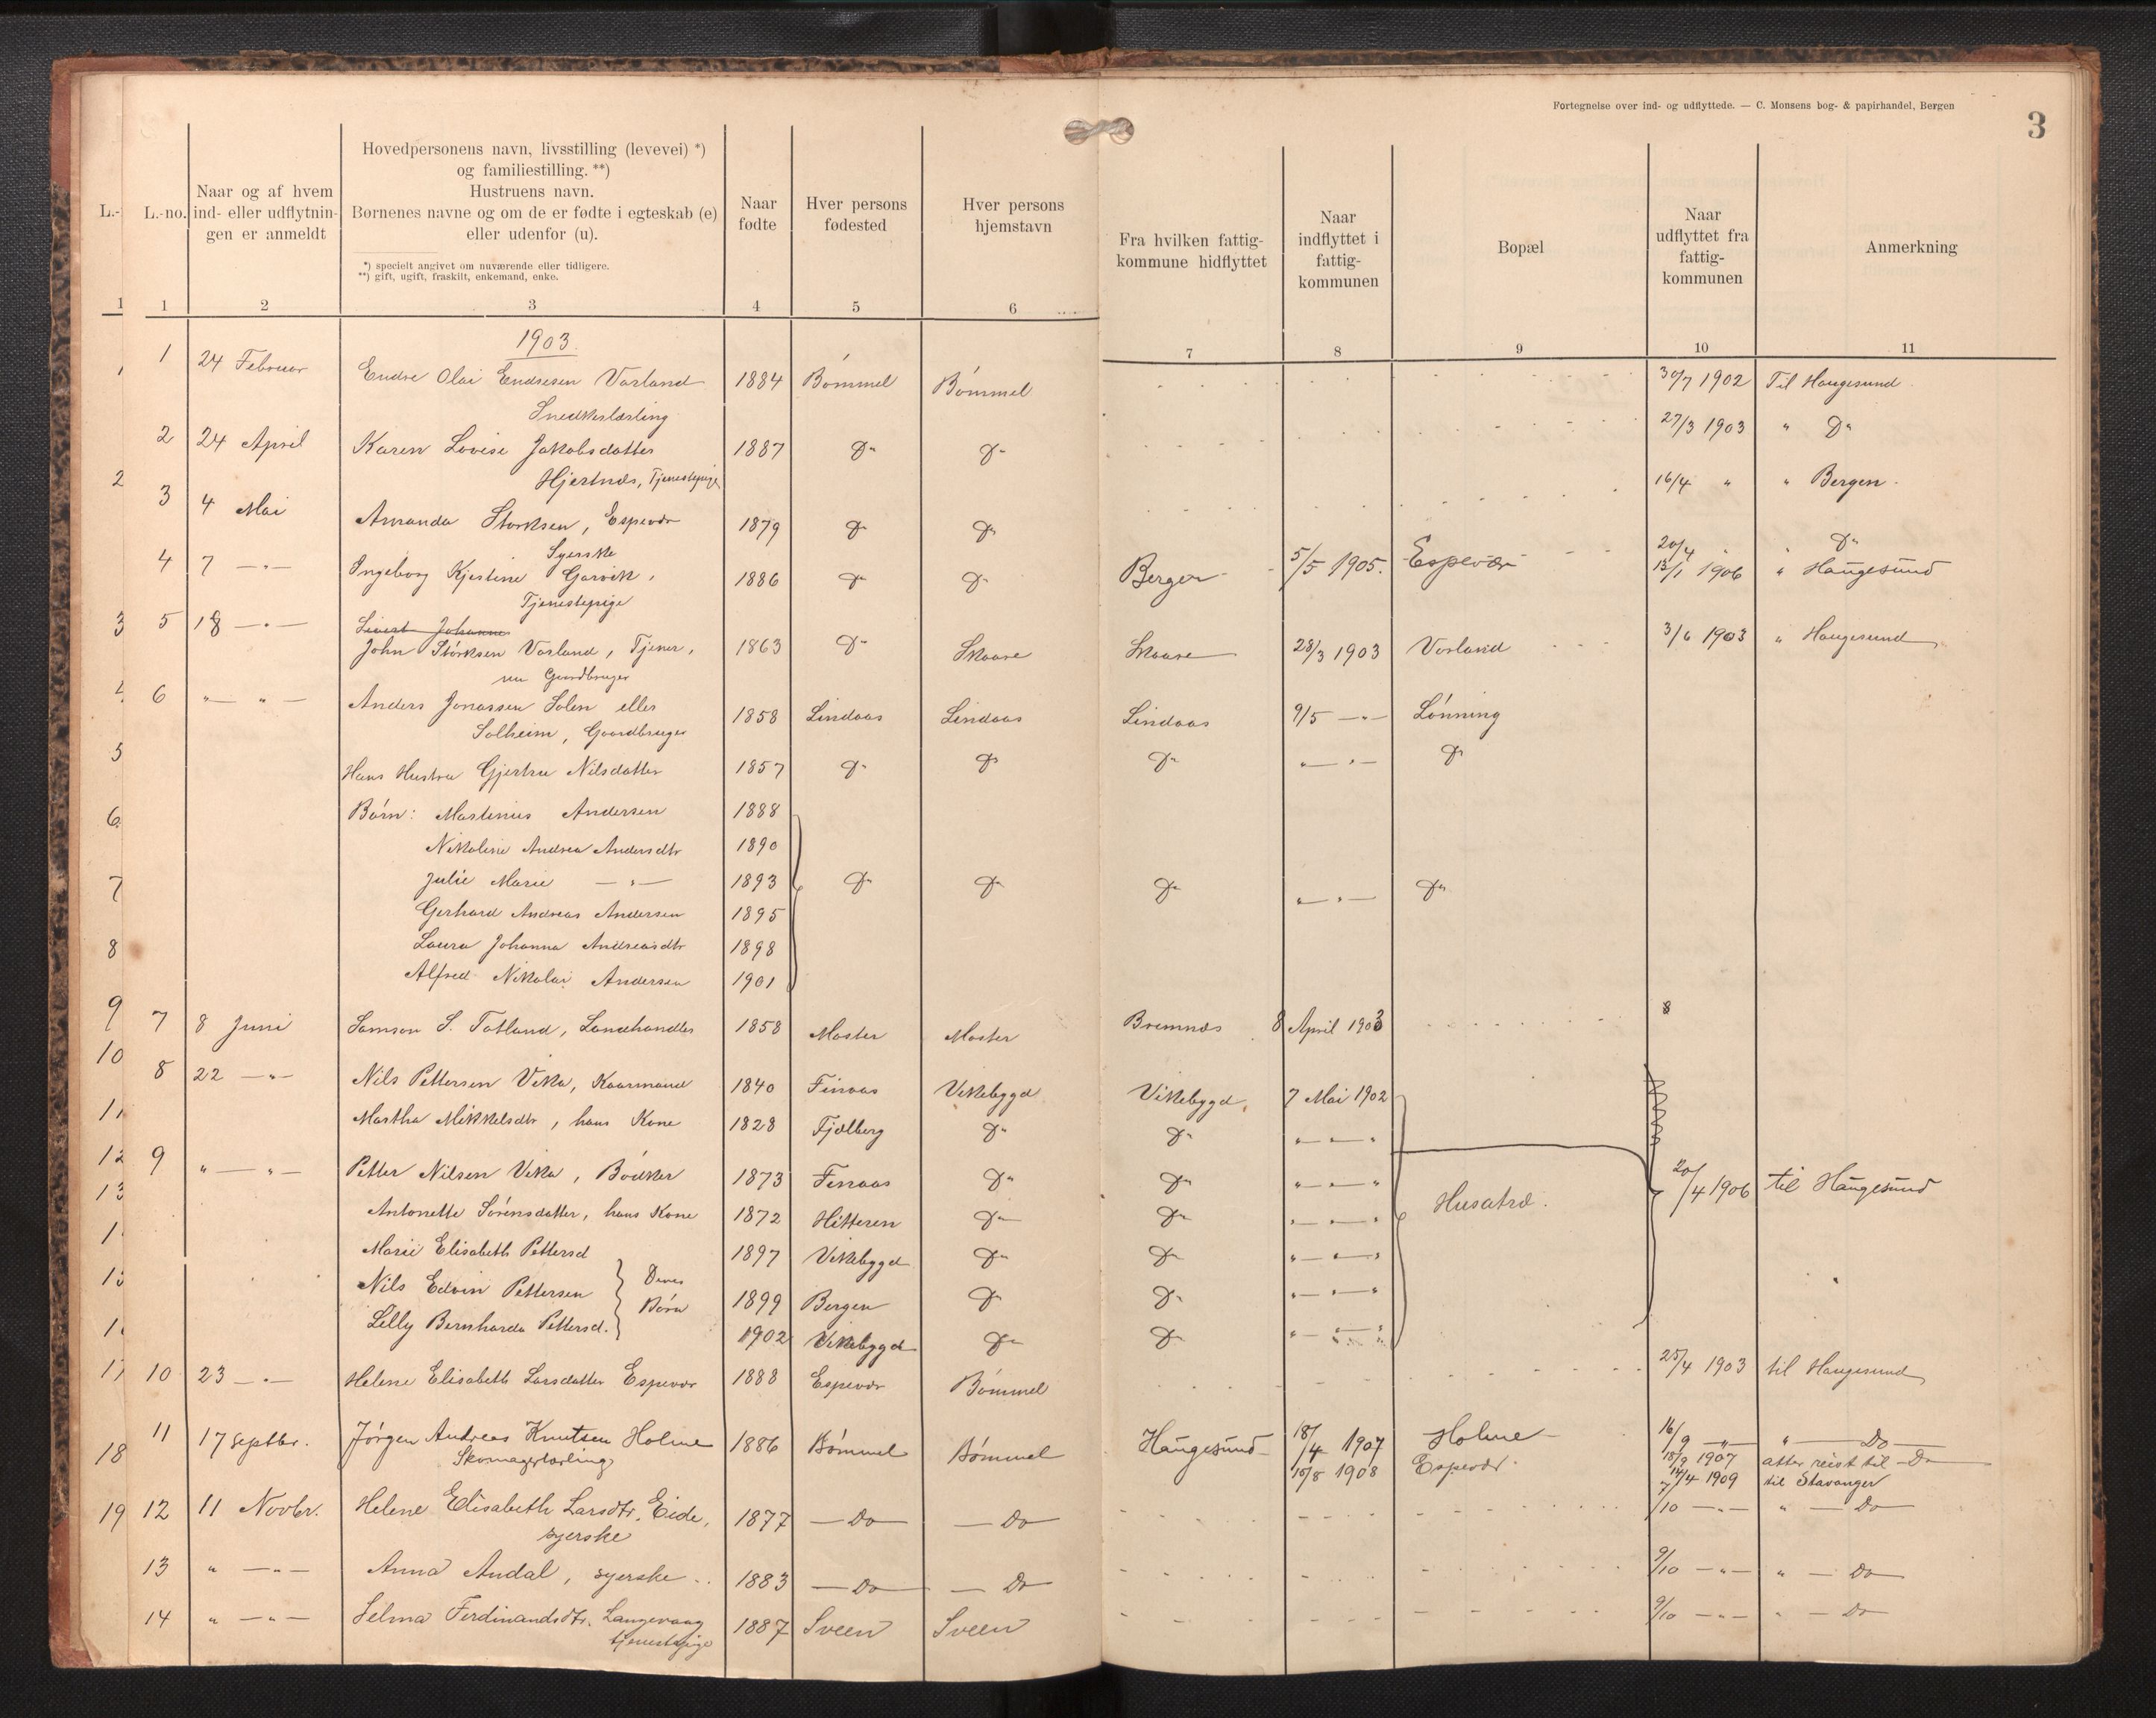 Fortegnelse over ind- og udflyttede. — C. Monsens bog- & papirhandel, Bergen
3
L.-
L.-no.
Naar og af hvem ind- eller udflytnin-gen er anmeldt
Hovedpersonens navn, livsstilling (levevei) *)
og familiestilling. **)
Hustruens navn.
Børnenes navne og om de er fødte i egteskab (e)
eller udenfor (u).
*) specielt angivet om nuværende eller tidligere.
**) gift, ugift, fraskilt, enkemand, enke.
Naar fødte
Hver persons fødested
Hver persons hjemstavn
Fra hvilken fattig-kommune hidflyttet
Naar indflyttet i fattig-kommunen
Bopæl
Naar udflyttet fra fattig-kommunen
Anmerkning
1 1 2 3 4 5 6 7 8 9 10 11
1903
1 24 Februar Endre Olai Endresen Vorland 1884 Bømmel Bømmel 30/7 1902 Til Haugesund
Snedkerlærling
2 24 April Karen Lovise Jakobsdatter 1887 Do Do 27/3 1903 " Do
Hjertnæs, Tjenestepige
3 4 Mai Amanda Storksen, Espevær 1879 Do Do 16/4 " " Bergen
Syerske
4 7 —"— Ingeborg Kjerstine Garvik, 1886 Do Do Bergen 5/5 1905. Espevær 20/4 " " Do
Tjenestepige 13/1 1906 " Haugesund
5 18 —"— Sivert Johannes
John Størksen Vorland, Tjener, 1863 Do Skaare Skaare 28/3 1903 Vorland 3/6 1903 " Haugesund
nu Gaardbruger
6 " — " — Anders Jonassen Solen eller 1858 Lindaas Lindaas Lindaas 9/5 —"— Lønning
Solheim, Gaardbruger
Hans Hustru Gjertru Nilsdatter 1857 Do Do Do " — " — Do
Børn: Martinius Andersen 1888
Nikoline Andrea Andersdtr 1890
Julie Marie — " — 1893 Do Do Do " — " — Do
Gerhard Andreas Andersen 1895
Laura Johanna Andreasdtr 1898
Alfred Nikolai Andersen 1901
7 8 Juni Samson S. Totland, Landhandler 1858 Moster Moster Bremnes 8 April 1903 8
8 22 —"— Nils Pettersen Vika, Kaarmand 1840 Finaas Vikebygd Vikebygd 7 Mai 1902
Martha Mikkelsdtr, hans Kone 1828 Fjelberg Do Do " — " — "
9 " — " — Petter Nilsen Vika, Bødker 1873 Finaas Do Do " — " — " 20/4 1906 til Haugesund
Antonette Sørensdatter, hans Kone 1872 Hitteren Do Do " — " — " Husatræ.
Marie Elisabeth Pettersd 1897 Vikebygd Do Do " — " — "
Nils Edvin Pettersen Deres 1899 Bergen Do Do " — " — "
Lilly Bernharda Pettersd. Børn 1902 Vikebygd Do Do " — " — "
10 23 —"— Helene Elisabeth Larsdatter Espevær 1888 Espevær Bømmel 25/4 1903 til Haugesund
11 17 Septbr. Jørgen Andreas Knutsen Holme 1886 Bømmel Bømmel Haugesund 18/4 1907 Holme 16/9 —"— " — Do —
Skomagerlærling 15/8 1908 Espevær 18/9 1907 atter reist til — Do
14/4 1909 til Stavanger
12 11 Novbr. Helene Elisabeth Larsdtr. Eide, 1877 — Do — — Do 7/10 —"— " — Do
syerske
13 " —"— Anna Andal, syerske 1883 — Do — — Do 9/10 —"— " — Do
14 " —"— Selma Ferdinandsdtr. Langevaag 1887 Sveen Sveen 9/10 —"— " — Do
tjenestepige
2
3
4
5
6
7
8
9
10
11
12
13
1
15
1
17
18
19